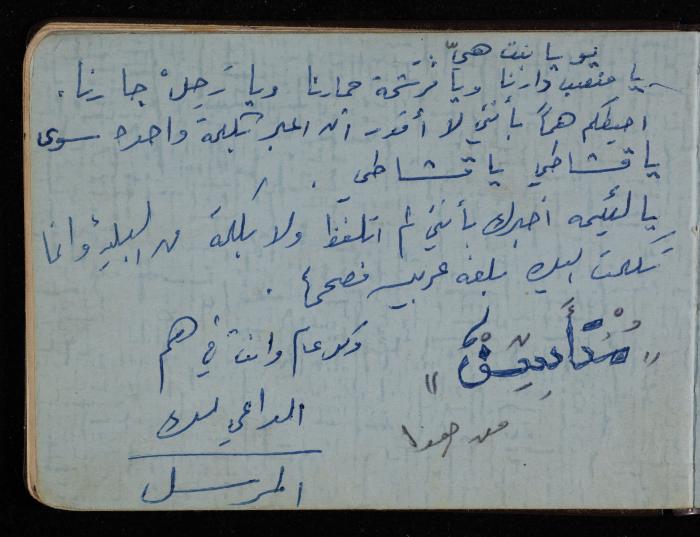 يو يا بنت هيّ
يا متعب دارنا ويا فرشحة حمارنا ويا رَجِلْ جارنا .
احيطكم هماً بأنني لا أقدر أن اعبر بكلمة واحده سوى
يا قشاطي يا قشاطي .
يا لئيمه أخبرك بأنني لم اتلفظ ولا بكلمة من وانما
تكلمت اليك بلغة عربيه فصحى .
وكل عام وانت في هم
الداعي لك
المرسل
من